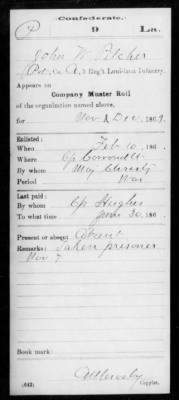 Confederate.
P 9 La.
John W. Pilcher
Pvt., Co. A, 9 Reg't Louisiana Infantry.
Appears on
Company Muster Roll
of the organization named above,
for Nov & Dec, 1863.
Enlisted:
When Feb 10, 186
Where Cp
By whom
Period War
Last paid:
By whom Cp Hughes
To what time June 30, 186
Present or absent Absent
Remarks: Taken prisoner
Nov 7
Book mark:
(642)
Copyist.